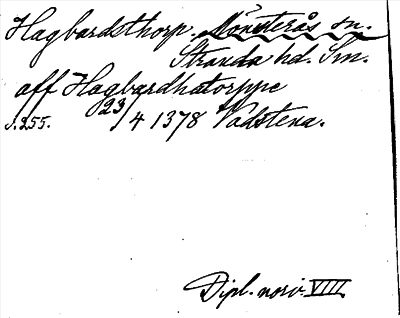 Hagbardsthorp. Mönsterås sn.
Stranda hd. Sm.
aff Hagbardhatorppe
s. 255. 23/4 1378 Vadstena.
Dipl. norv. VIII.